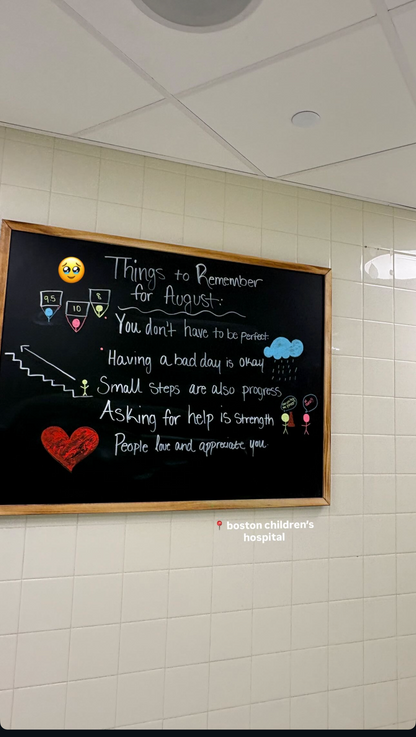 Things to Remember
for August:
9.5
10
8
You don't have to be perfect.
Having a bad day is okay
Small steps are also progress
Asking for help is strength
People love and appreciate you
📍 boston children's
hospital